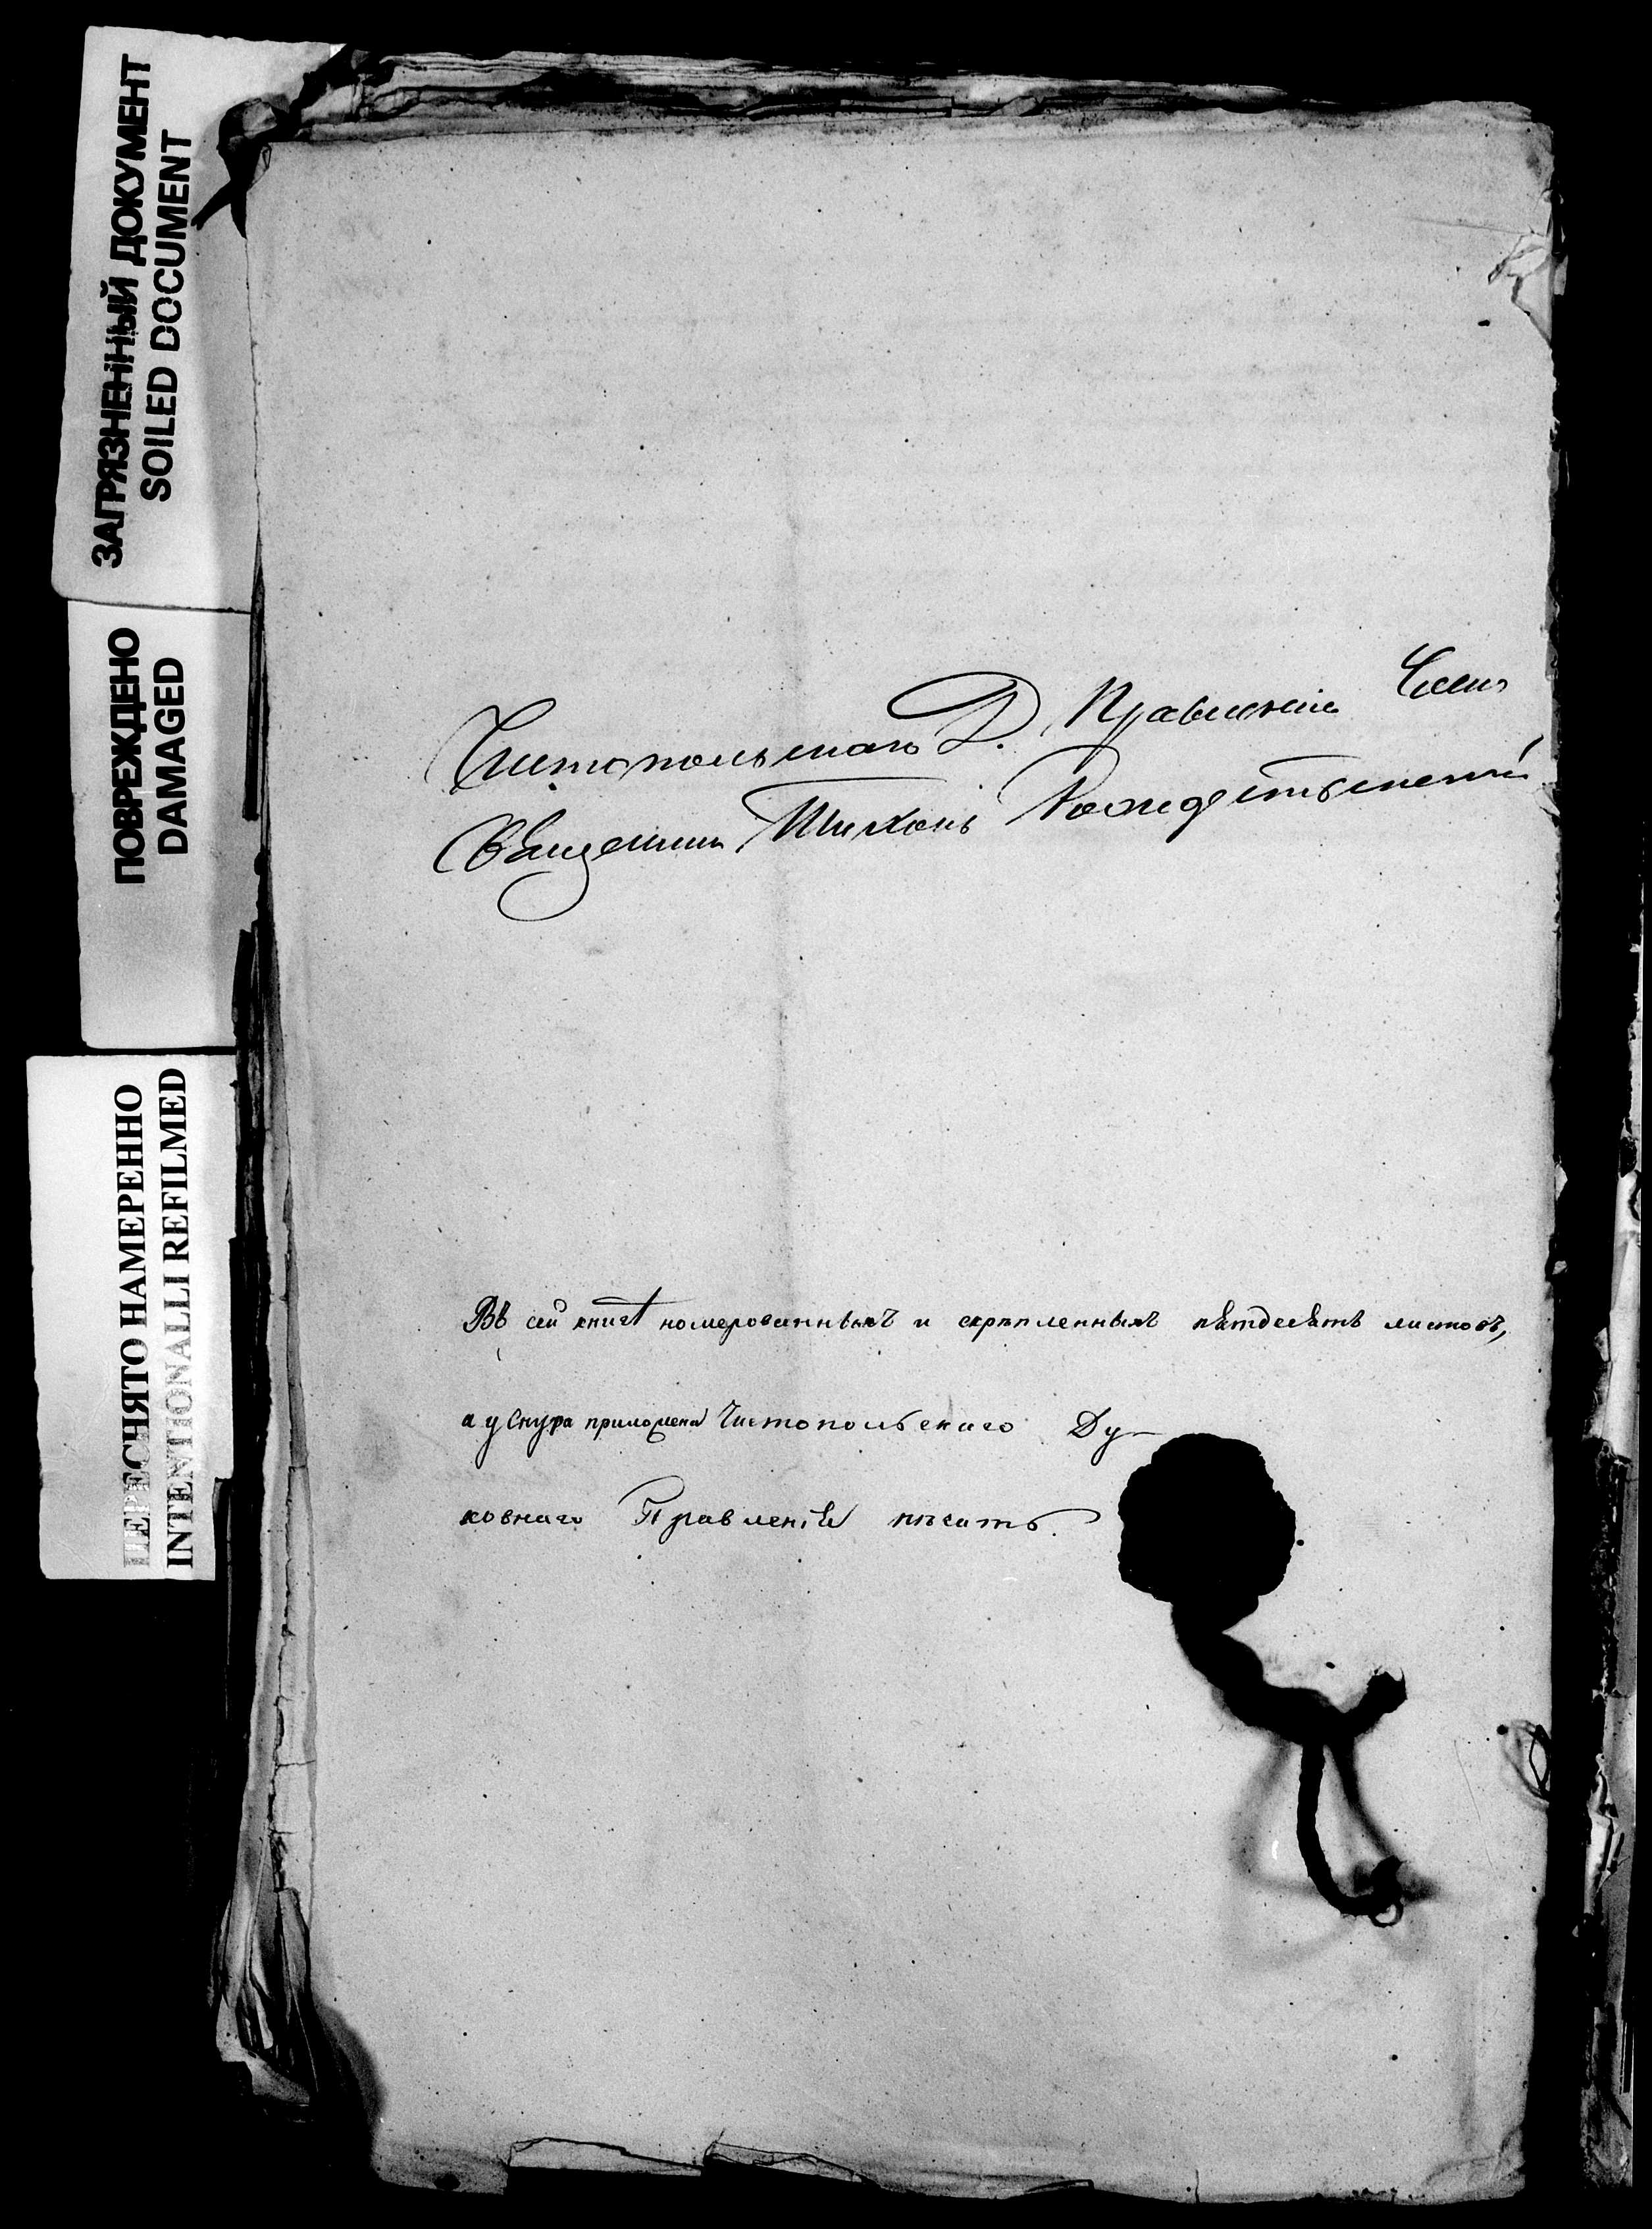 ЗАГРЯЗНЕННЫЙ ДОКУМЕНТ
SOILED DOCUMENT
ПОВРЕЖДЕНО
DAMAGED
ПЕРЕСНЯТО НАМЕРЕННО
INTENTIONALLI REFILMED
Чистопольскаго Д. Правленія Член
Священник Тихонъ Рождественскій
Въ сей книгѣ номерованныхъ и скрѣпленныхъ пятдесятъ листовъ,
а у снура приложена Чистопольскаго Ду-
ховнаго Правленія печать.